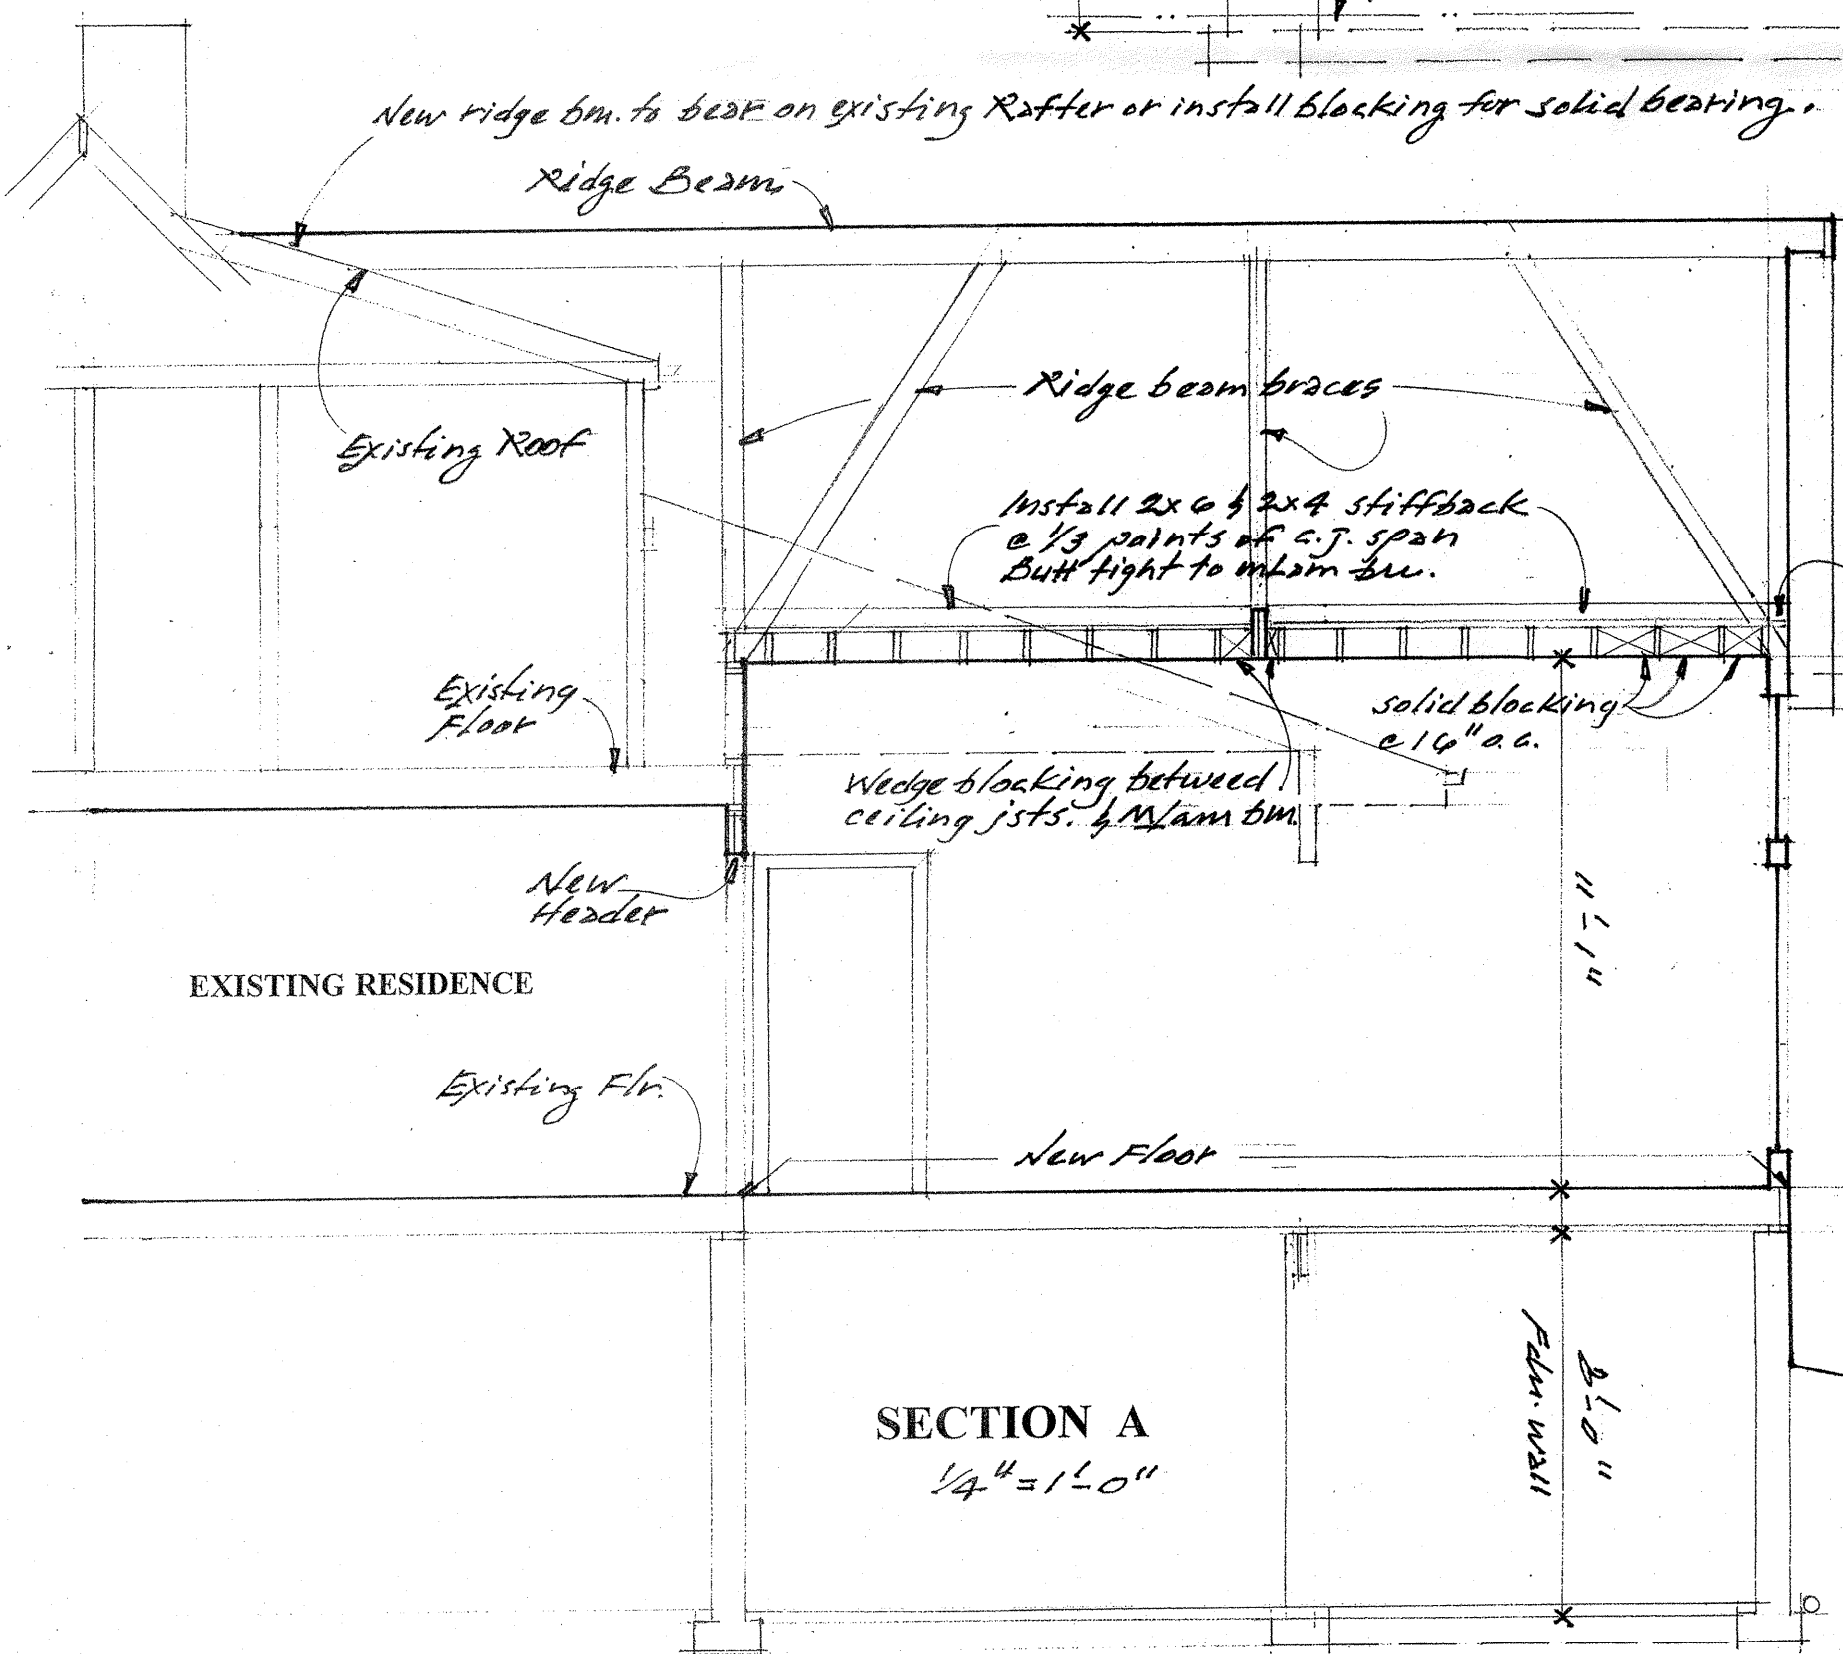 New ridge bm. to bear on existing Rafter or install blocking for solid bearing.
Ridge Beam
Ridge beam braces
Existing Roof
Install 2x6 & 2x4 stiffback
@ 1/3 points of c.j. span
Butt tight to mLam bm.
Existing
Floor
solid blocking
@ 16" o.c.
Wedge blocking betweed
ceiling jsts. & M/am bm.
New
Header
11'-1"
EXISTING RESIDENCE
Existing Flr.
New Floor
8'-0"
Fdn. wall
SECTION A
1/4" = 1'-0"